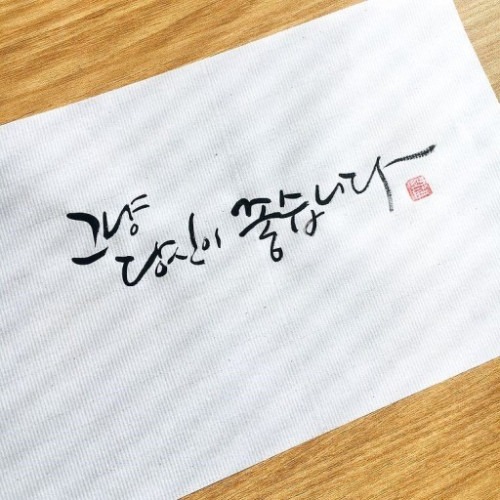 그냥 당신이 좋습니다